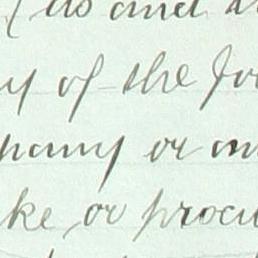 do and
y of the for
pany or an
ke, or procu